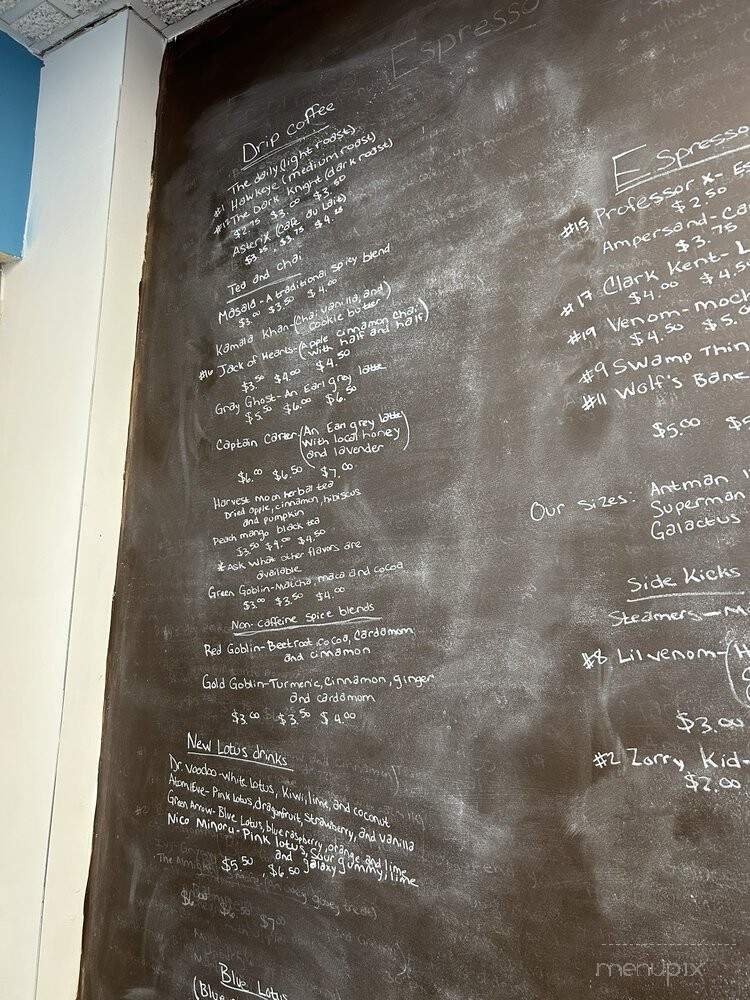 Espresso
Drip coffee
The daily (light roast)
#1 Hawkeye (medium roast)
#12 The Dark Knight (dark roast)
$2.75 $3.00 $3.50
Asterix (Cafe au Lait)
$3.75 $4.25
Tea and chai
Masala - A traditional spicy blend
$3.00 $3.50 $4.00
Kamala Khan - (Chai, vanilla, and
cookie butter)
#16 Jack of Hearts - (Apple cinnamon chai
with half and half)
$3.50 $4.00 $4.50
Gray Ghost - An Earl grey latte
$5.50 $6.00 $6.50
Captain Carter: (An Earl grey latte
With local honey
and lavender)
$6.00 $6.50 $7.00
Harvest moon herbal tea
Dried apple, cinnamon, hibiscus
and pumpkin
Peach mango black tea
$3.50 $4.00 $4.50
*Ask what other flavors are
available
Green Goblin - Matcha, maca and cocoa
$3.00 $3.50 $4.00
Non-caffeine spice blends
Red Goblin - Beetroot, cocoa, cardamom
and cinnamon
Gold Goblin - Turmeric, cinnamon, ginger
and cardamom
$3.00 $3.50 $4.00
New Lotus drinks
Dr. Voodoo - white lotus, kiwi, lime, and coconut
Atom Eve - Pink lotus, dragonfruit, strawberry, and vanilla
Green Arrow - Blue Lotus, blue raspberry, orange and lime
Nico Minoru - Pink lotus, sour gummy, lime
and galaxy
$5.50 $6.50
$7.00
Blue Lotus
(Blue
Espresso
#15 Professor X - Es
$2.50
Ampersand - Ca
$3.75
#17 Clark Kent - L
$4.00 $4.5
#19 Venom - Moc
$4.50 $5.0
#9 Swamp Thin
#11 Wolf's Bane
$5.00 $5
Our sizes: Antman
Superman
Galactus
Side Kicks
Steamers - M
#8 Lil venom - (H
$3.00
#2 Zorry Kid -
$2.00
menupix